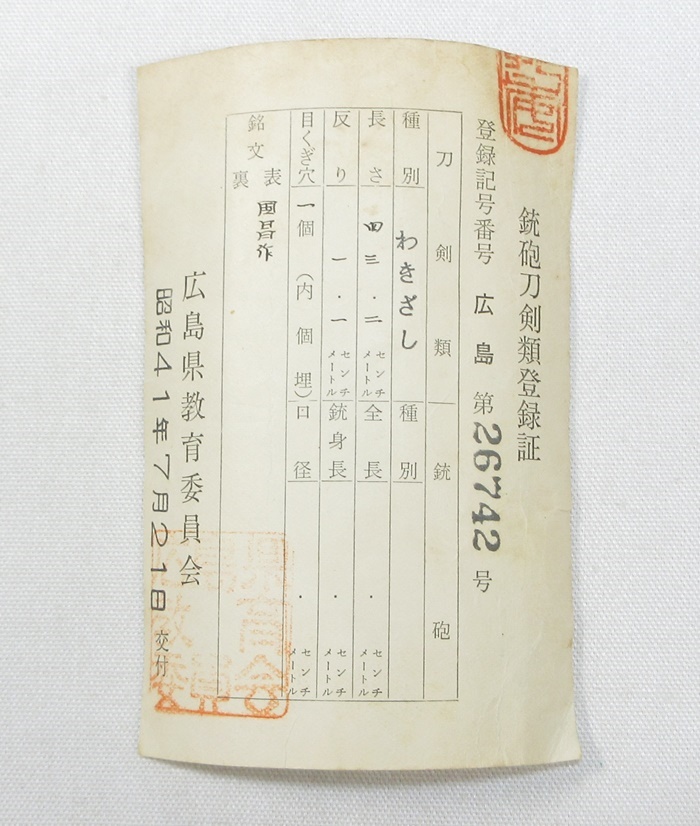 銃砲刀剣類登録証
登録記号番号 広島 第26742号
刀剣類 銃砲
種別 わきざし 種別
長さ 四三・二 センチメートル 全長 ・ センチメートル
反り 一・一 センチメートル 銃身長 ・ センチメートル
目くぎ穴 一個(内 個埋) 口径 ・ センチメートル
銘文 表 国昌作
裏
広島県教育委員会
昭和41年7月21日交付